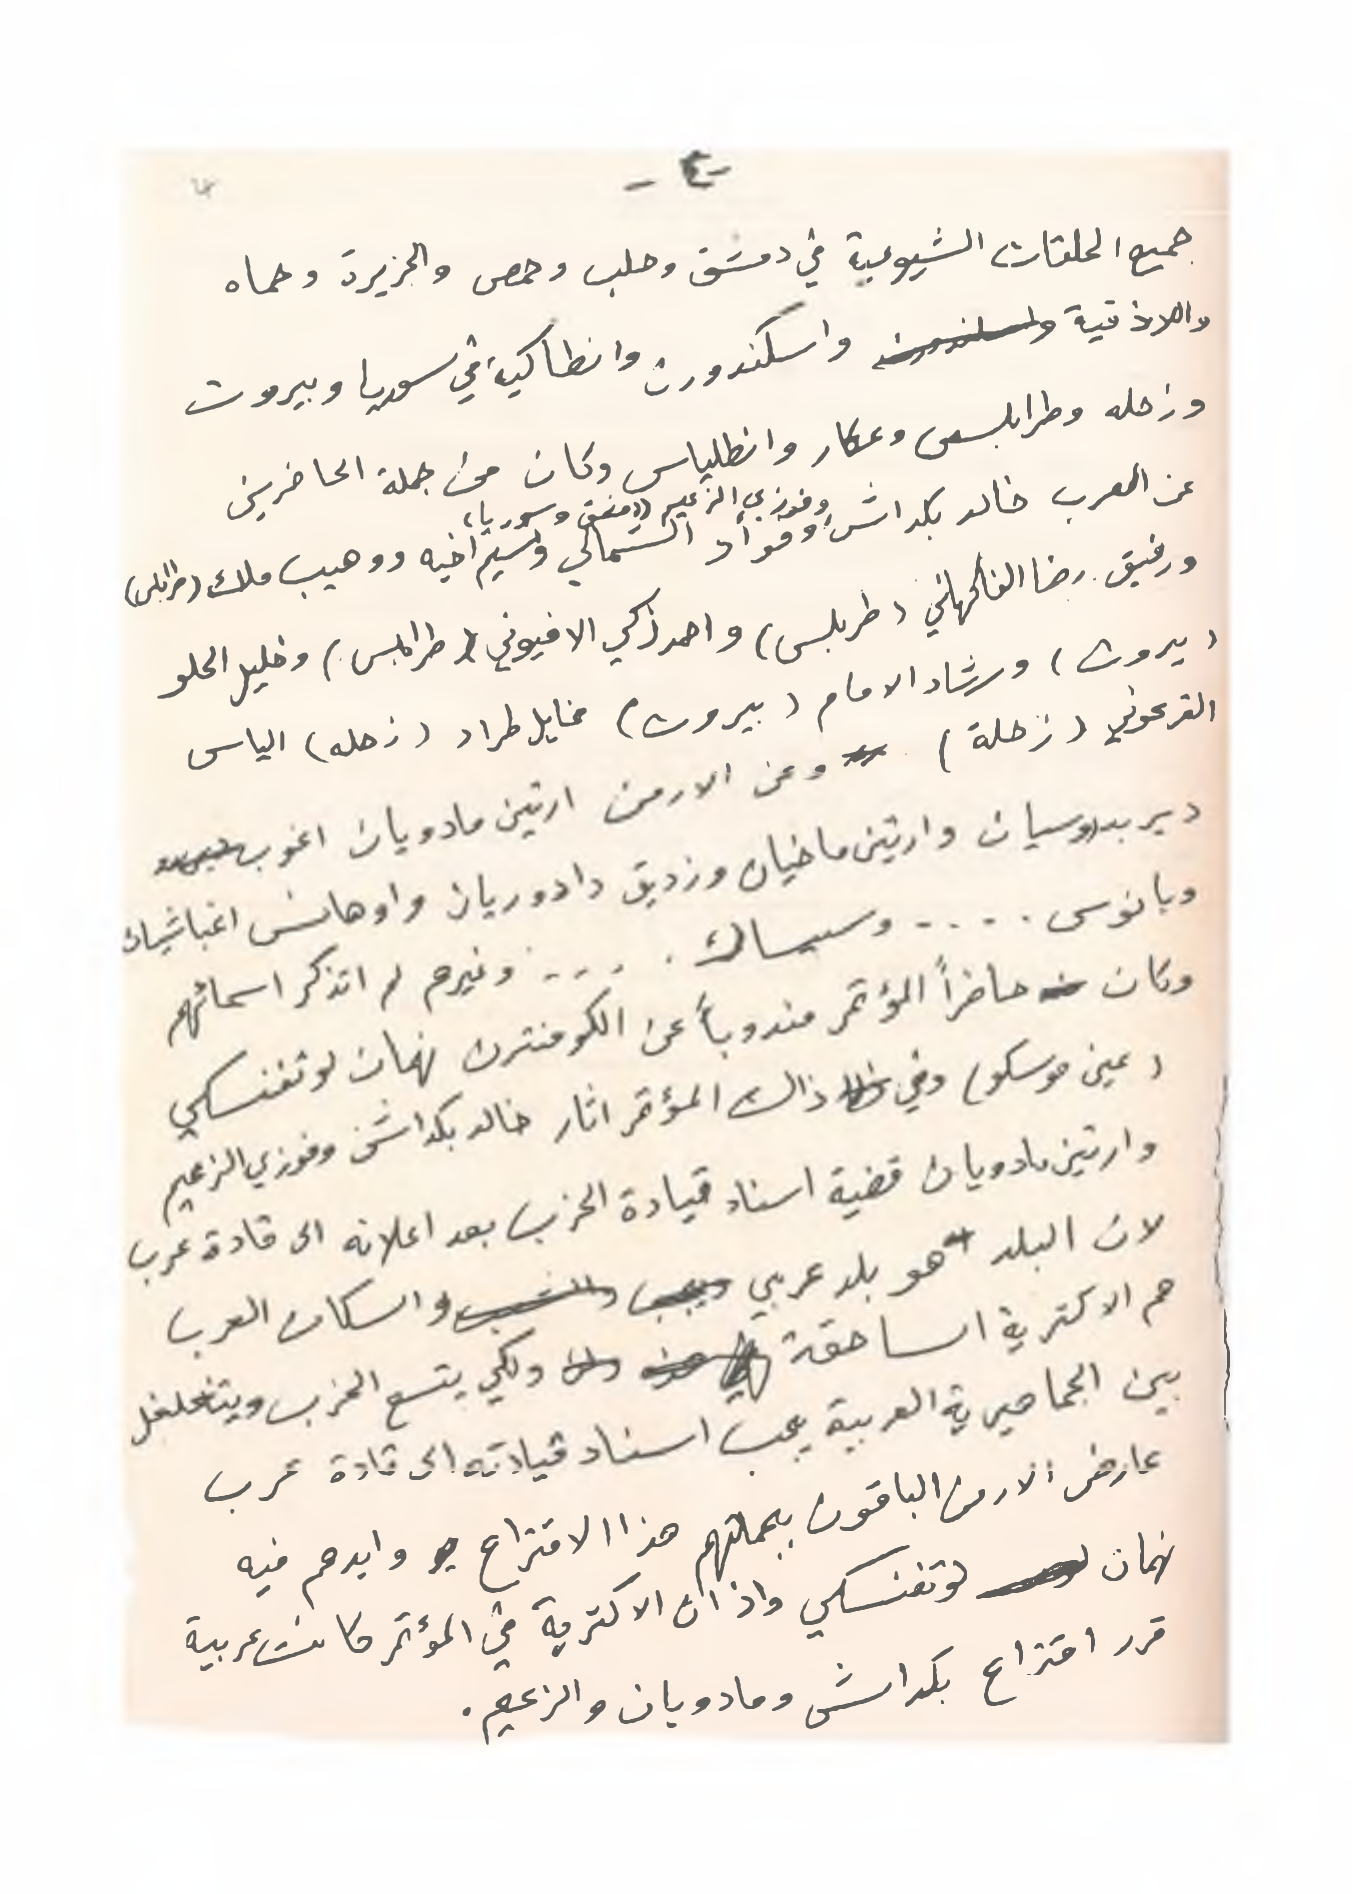 - ٤ -
جميع الحلقات الشيوعية في دمشق وحلب وحمص والجزيرة وحماه
واللاذقية واسكندورن وانطاكية في سوريا وبيروت
وزحله وطرابلس وعكار وانطلياس وكان من جملة الحاضرين
وفوزي الزعيم ((دمشق وسوريا))
عن العرب خالد بكداش وفؤاد الشمالي وسيم اخيه ووهيب ملك (طرابلس)
ورفيق رضا الفاكهاني (طربلس) واحمد زكي الافيوني (طرابلس) وخليل الحلو
(بيروت) ورشاد الامام (بيروت) مخايل طراد (زحله) الياس
القرعوني (زحلة) وعن الارمن ارتين مادويان اغوب
دير بدروسيان وارتين ماخيان وزديق دادوريان واوهانس اغباشيان
وبانوس .... وسيساك .... وغيرهم لم اتذكر اسمائهم
وكان حاضراً المؤتمر مندوباً عن الكومنترن نهمان لوتفنسكي
(عين موسكو) وفي ذالك المؤتمر اثار خالد بكداش وفوزي الزعيم
وارتين مادويان قضية اسناد قيادة الحزب بعد اعلانه الى قادة عرب
لان البلد هو بلد عربي والسكان العرب
هم الاكترية الساحقة ولكي يتسع الحزب ويتغلغل
بين الجماهيرية العربية يجب اسناد قيادته الى قادة عرب
عارض الارمن الباقون بجملتهم هذا الاقتراع وايدهم فيه
نهمان لوتفنسكي واذ ان الاكترية في المؤتمر كانت عربية
قرر اقتراع بكداش ومادويان والزعيم .